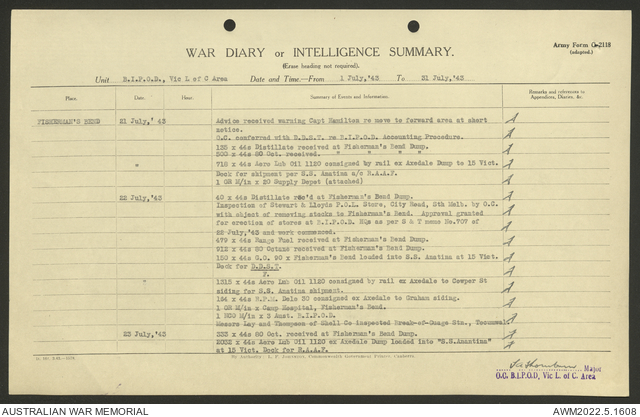 Army Form C 2118
(adapted.)
WAR DIARY or INTELLIGENCE SUMMARY.
(Erase heading not required).
Unit B.I.P.O.D., Vic L of C Area Date and Time.—From 1 July,'43 To 31 July,'43
Place. Date. Hour. Summary of Events and Information. Remarks and references to
Appendices, Diaries, &c.
FISHERMAN'S BEND 21 July,'43 Advice received warning Capt Hamilton re move to forward area at short
notice.
O.C. conferred with D.D.S.T. re B.I.P.O.D. Accounting Procedure.
135 x 44s Distillate received at Fisherman's Bend Dump.
x 44s 80 Oct received. " " " "
" 718 x 44s Aero Lub Oil 1120 consigned by rail ex Axedale Dump to 15 Vict.
Dock for shipment per S.S. Anatina a/c R.A.A.F.
1 OR M/in x 20 Supply Depot (attached)
22 July,'43 40 x 44s Distillate rec'd at Fisherman's Bend Dump.
Inspection of Stewart & Lloyds P.O.L. Store, City Road, Sth Melb. by O.C.
with object of removing stocks to Fisherman's Bend. Approval granted
for erection of stores at B.I.P.O.D. HQs as per S & T memo No.707 of
22 July,'43 and work commenced.
479 x 44s Range Fuel received at Fisherman's Bend Dump.
912 x 44s 80 Octane received at Fisherman's Bend Dump.
150 x 44s G.O. 90 x Fisherman's Bend loaded into S.S. Anatina at 15 Vict.
Dock for D.D.S.T.
F.
" 1315 x 44s Aero Lub Oil 1120 consigned by rail ex Axedale to Cowper St
siding for S.S. Anatina shipment.
164 x 44s R.P.M. Delo 30 consigned ex Axedale to Graham siding.
1 OR M/in x Camp Hospital, Fisherman's Bend.
1 NCO M/in x 3 Aust. B.I.P.O.D.
Messrs Lay and Thompson of Shell Co inspected Break-of-Guage Stn., Tocumwal
23 July,'43 333 x 44s 80 Oct received at Fisherman's Bend Dump.
2032 x 44s Aero Lub Oil 1120 ex Axedale Dump loaded into "S.S.Anantina"
at 15 Vict. Dock for R.A.A.F.
Major
O.C. B.I.P.O.D, Vic L. of C. Area
AUSTRALIAN WAR MEMORIAL
AWM2022.5.1608